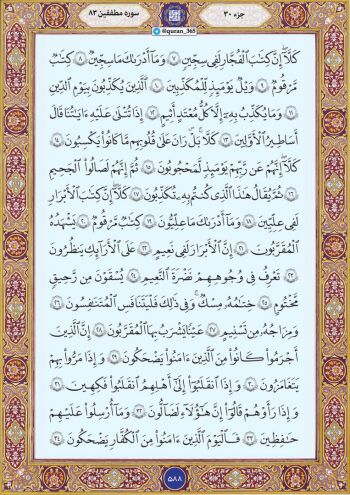 جزء ۳۰
@quran_365
سوره مطففین ۸۳
كَلَّآ إِنَّ كِتَٰبَ ٱلۡفُجَّارِ لَفِي سِجِّينٖ ۷ وَمَآ أَدۡرَىٰكَ مَا سِجِّينٞ ۸ كِتَٰبٞ
مَّرۡقُومٞ ۹ وَيۡلٞ يَوۡمَئِذٖ لِّلۡمُكَذِّبِينَ ۱۰ ٱلَّذِينَ يُكَذِّبُونَ بِيَوۡمِ ٱلدِّينِ
۱۱ وَمَا يُكَذِّبُ بِهِۦٓ إِلَّا كُلُّ مُعۡتَدٍ أَثِيمٍ ۱۲ إِذَا تُتۡلَىٰ عَلَيۡهِ ءَايَٰتُنَا قَالَ
أَسَٰطِيرُ ٱلۡأَوَّلِينَ ۱۳ كَلَّاۖ بَلۡۜ رَانَ عَلَىٰ قُلُوبِهِم مَّا كَانُواْ يَكۡسِبُونَ ۱۴
كَلَّآ إِنَّهُمۡ عَن رَّبِّهِمۡ يَوۡمَئِذٖ لَّمَحۡجُوبُونَ ۱۵ ثُمَّ إِنَّهُمۡ لَصَالُواْ ٱلۡجَحِيمِ
۱۶ ثُمَّ يُقَالُ هَٰذَا ٱلَّذِي كُنتُم بِهِۦ تُكَذِّبُونَ ۱۷ كَلَّآ إِنَّ كِتَٰبَ ٱلۡأَبۡرَارِ
لَفِي عِلِّيِّينَ ۱۸ وَمَآ أَدۡرَىٰكَ مَا عِلِّيُّونَ ۱۹ كِتَٰبٞ مَّرۡقُومٞ ۲۰ يَشۡهَدُهُ
ٱلۡمُقَرَّبُونَ ۲۱ إِنَّ ٱلۡأَبۡرَارَ لَفِي نَعِيمٍ ۲۲ عَلَى ٱلۡأَرَآئِكِ يَنظُرُونَ
۲۳ تَعۡرِفُ فِي وُجُوهِهِمۡ نَضۡرَةَ ٱلنَّعِيمِ ۲۴ يُسۡقَوۡنَ مِن رَّحِيقٖ
مَّخۡتُومٍ ۲۵ خِتَٰمُهُۥ مِسۡكٞۚ وَفِي ذَٰلِكَ فَلۡيَتَنَافَسِ ٱلۡمُتَنَٰفِسُونَ ۲۶
وَمِزَاجُهُۥ مِن تَسۡنِيمٍ ۲۷ عَيۡنٗا يَشۡرَبُ بِهَا ٱلۡمُقَرَّبُونَ ۲۸ إِنَّ ٱلَّذِينَ
أَجۡرَمُواْ كَانُواْ مِنَ ٱلَّذِينَ ءَامَنُواْ يَضۡحَكُونَ ۲۹ وَإِذَا مَرُّواْ بِهِمۡ
يَتَغَامَزُونَ ۳۰ وَإِذَا ٱنقَلَبُوٓاْ إِلَىٰٓ أَهۡلِهِمُ ٱنقَلَبُواْ فَكِهِينَ ۳۱
وَإِذَا رَأَوۡهُمۡ قَالُوٓاْ إِنَّ هَٰٓؤُلَآءِ لَضَآلُّونَ ۳۲ وَمَآ أُرۡسِلُواْ عَلَيۡهِمۡ
حَٰفِظِينَ ۳۳ فَٱلۡيَوۡمَ ٱلَّذِينَ ءَامَنُواْ مِنَ ٱلۡكُفَّارِ يَضۡحَكُونَ ۳۴
۵۸۸